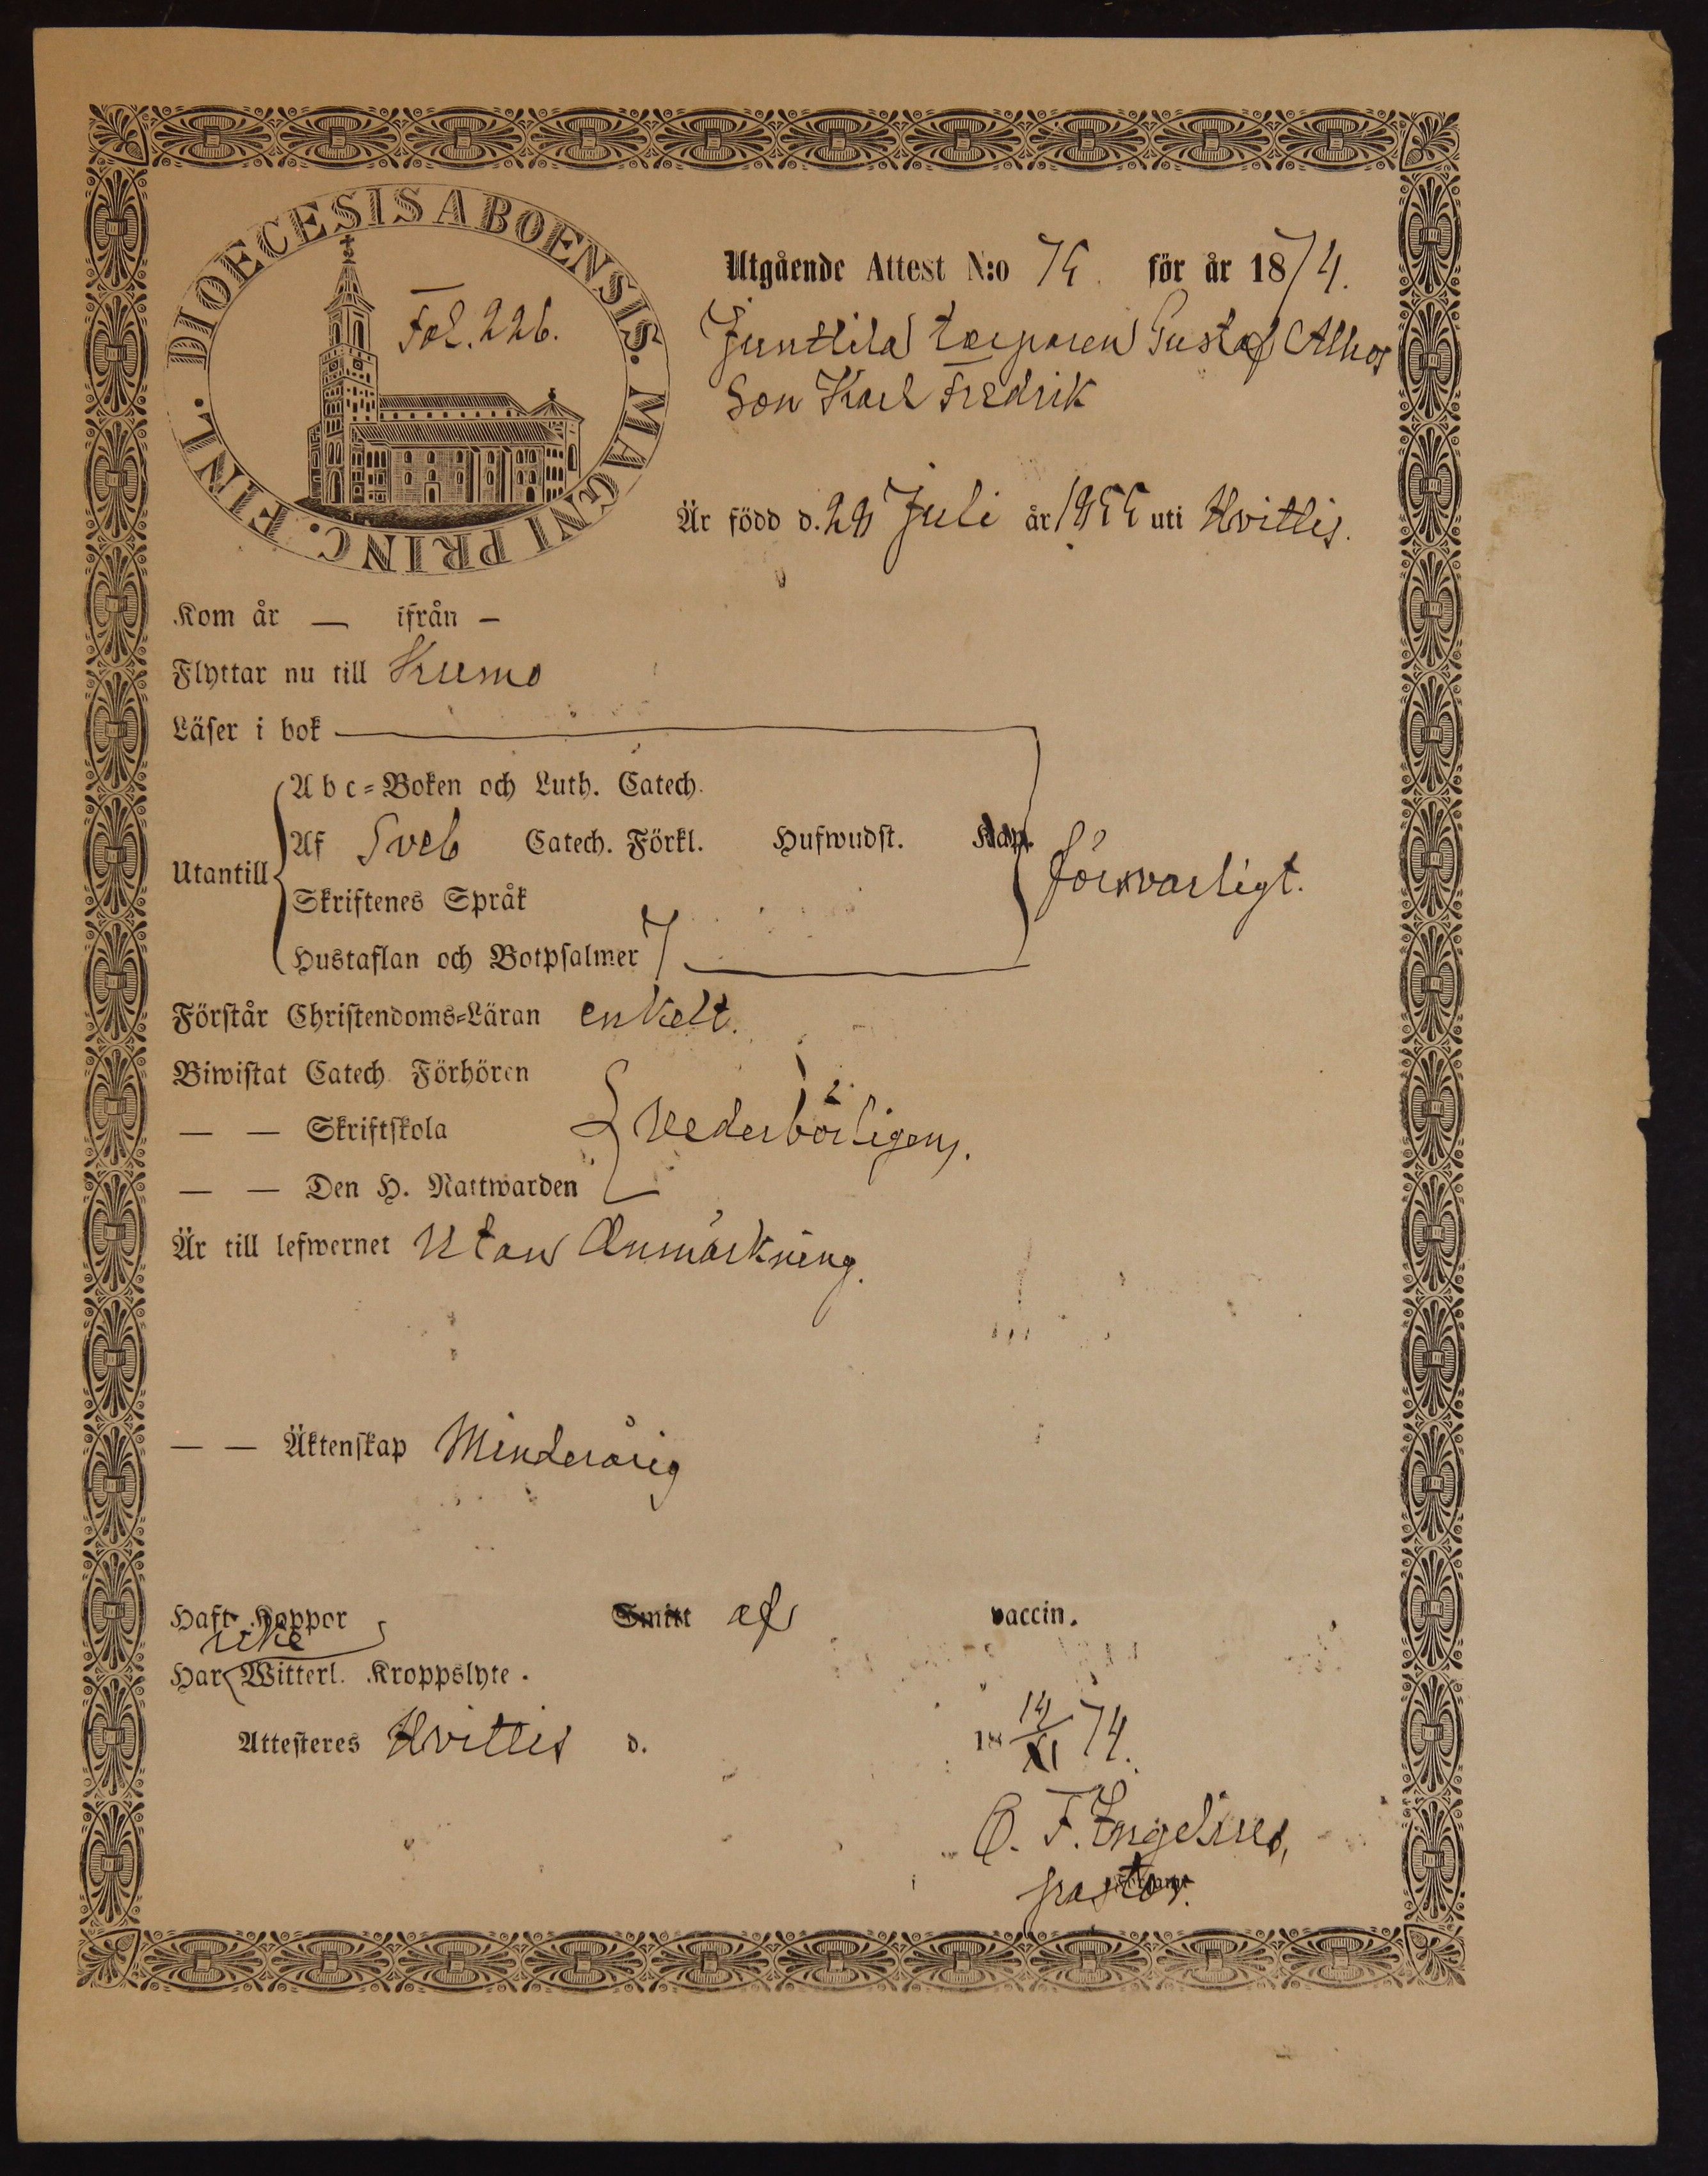 DIOECESIS ABOENSIS. MAGNI PRINC. FINL.
Fol. 226.
Utgående Attest N:o 75. för år 1874.
Junttila torparen Gustaf
Son Karl Fredrik
Är född d. 29 Juli år 1855 uti Hvittis.
Kom år — ifrån —
Flyttar nu till Kumo
Läser i bok
Abc-Boken och Luth. Catech.
Af Sveb Catech. Förkl. Hufwudst. Kap.
försvarligt.
Utantill
Skriftenes Språk
Hustaflan och Botpsalmer 7
Förstår Christendoms-Läran enkelt.
Biwistat Catech. Förhören
— — Skriftskola
vederbörligen.
— — Den H. Nattwarden
Är till lefwernet utan Anmärkning.
— — Äktenskap Minderårig
Haft Koppor Smitt af vaccin.
icke
Har Witterl. Kroppslyte.
Attesteres Hvittis d. 18 14/XI 74.
O. F. Engelius,
pastor.